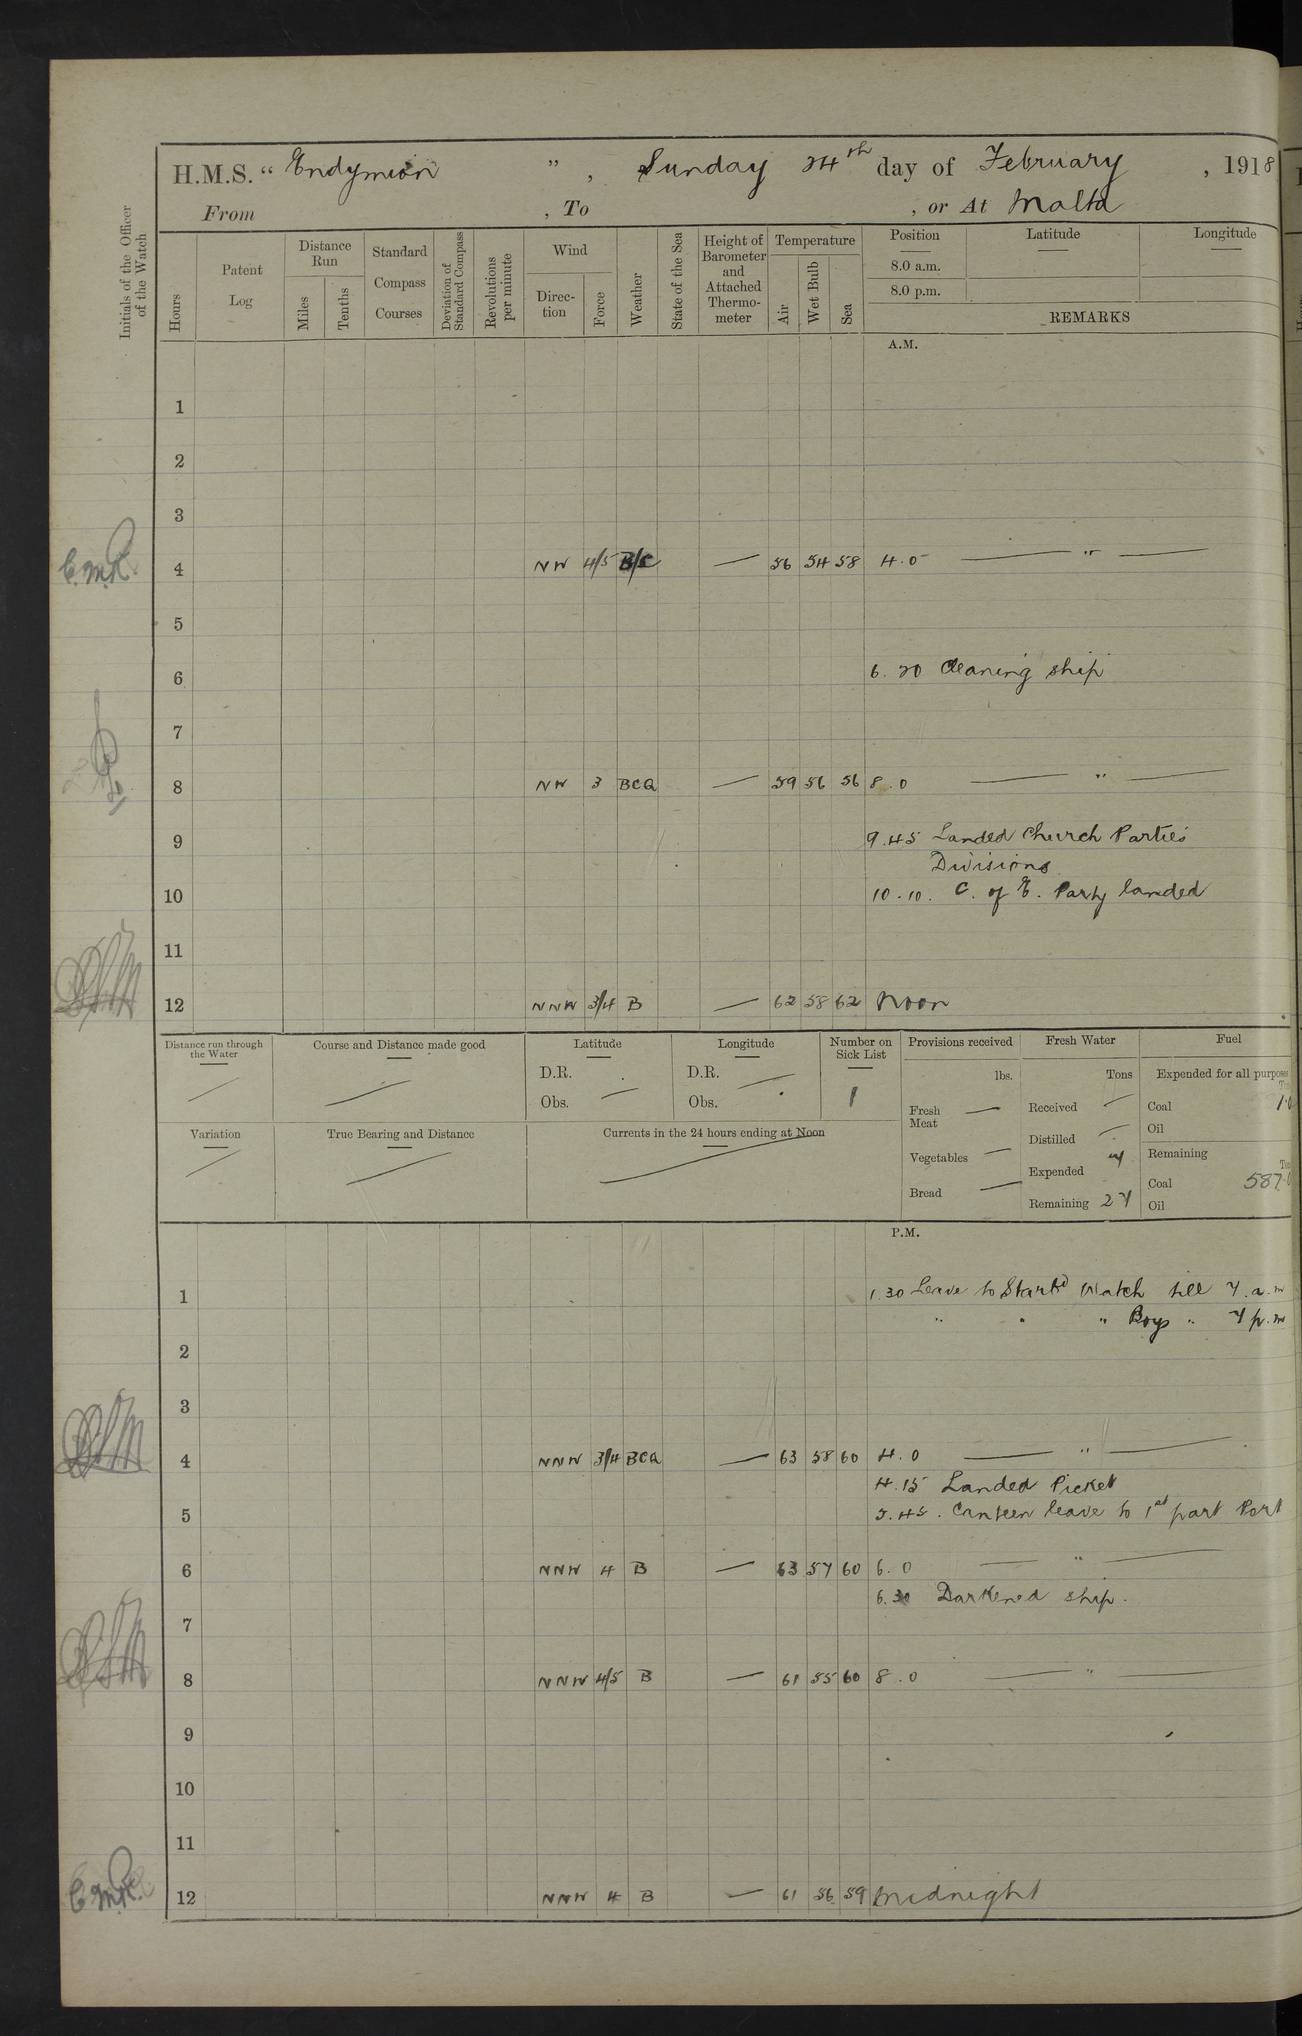 H.M.S. “ Endymion ”, Sunday 24th day of February, 1918
From , To , or At Malta
Initials of the Officer of the Watch
Hours
Patent Log
Distance Run
Miles
Tenths
Standard Compass Courses
Deviation of Standard Compass
Revolutions per minute
Wind
Direc-tion
Force
Weather
State of the Sea
Height of Barometer and Attached Thermo-meter
Temperature
Air
Wet Bulb
Sea
Position Latitude Longitude
8.0 a.m.
8.0 p.m.
REMARKS
A.M.
1
2
3
C.M.R. 4 NW 4/5 B/C — 56 54 58 4.0 — " —
5
6 6.20 Cleaning ship
7
8 NW 3 BCQ — 59 56 56 8.0 — " —
9 9.45 Landed Church Parties
Divisions
10 10.10. C. of E. Party landed
11
12 NNW 3/4 B — 62 58 62 Noon
Distance run through the Water
Course and Distance made good
Latitude
D.R.
Obs. —
Longitude
D.R. —
Obs.
Number on Sick List
1
Provisions received
lbs.
Fresh Meat —
Vegetables —
Bread —
Fresh Water
Tons
Received —
Distilled —
Expended 7
Remaining 27
Fuel
Expended for all purposes
Coal
Oil
Remaining
Coal 587.0
Oil
Variation
True Bearing and Distance
Currents in the 24 hours ending at Noon
P.M.
1 1.30 Leave to Starbd Watch till 7.a.m
" " " Boys " 7 p.m
2
3
4 NNW 3/4 BCQ — 63 58 60 4.0 — " —
4.15 Landed Picket
5 5.45. Canteen leave to 1st part Port
6 NNW 4 B — 63 57 60 6.0 — " —
6.30 Darkened ship.
7
8 NNW 4/5 B — 61 55 60 8.0 — " —
9
10
11
C.M.R. 12 NNW 4 B — 61 56 59 Midnight